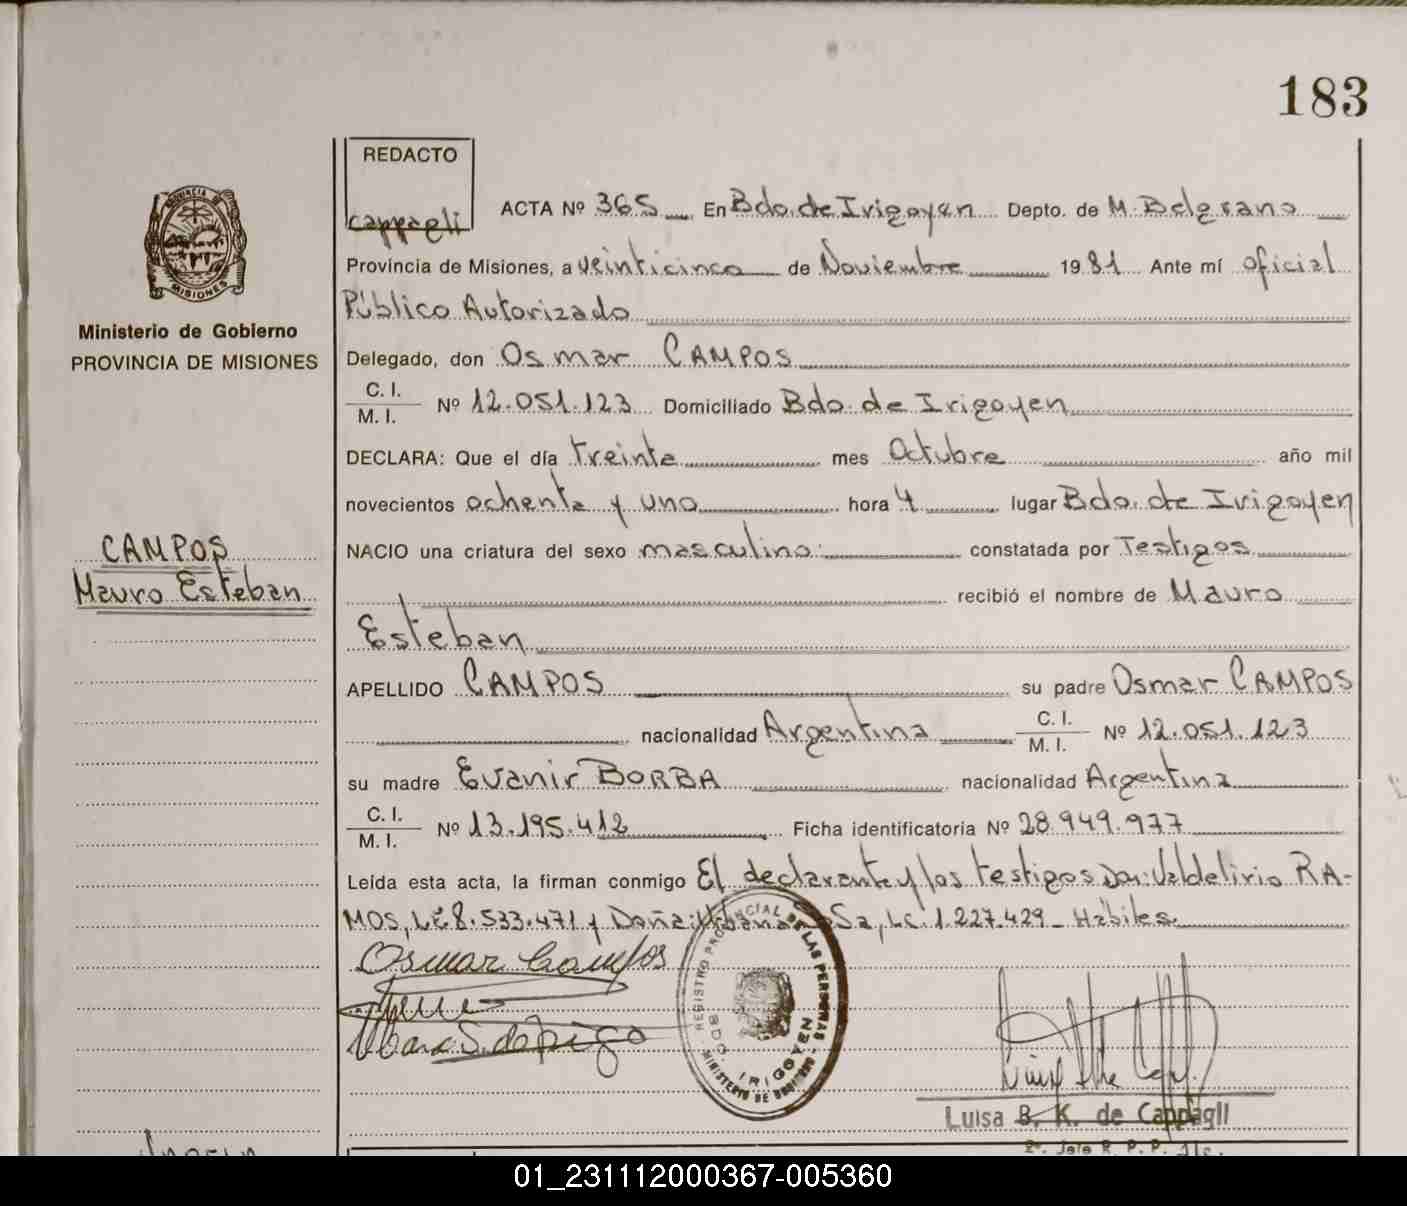 183
REDACTO
cappagli
PROVINCIA DE
MISIONES
Ministerio de Gobierno
PROVINCIA DE MISIONES
CAMPOS
Mauro Esteban
ACTA Nº 365 En Bdo. de Irigoyen Depto. de M. Belgrano
Provincia de Misiones, a veinticinco de Noviembre 1981 Ante mí oficial
Público Autorizado
Delegado, don Osmar CAMPOS
C. I.
M. I. Nº 12.051.123 Domiciliado Bdo. de Irigoyen
DECLARA: Que el día treinta mes Octubre año mil
novecientos ochenta y uno hora 4 lugar Bdo. de Irigoyen
NACIO una criatura del sexo masculino: constatada por Testigos
recibió el nombre de Mauro
Esteban
APELLIDO CAMPOS su padre Osmar CAMPOS
nacionalidad Argentina C. I.
M. I. Nº 12.051.123
su madre Evanir BORBA nacionalidad Argentina
C. I.
M. I. Nº 13.195.412 Ficha identificatoria Nº 28.949.977
Leída esta acta, la firman conmigo El declarante y los testigos Don: Valdelirio RA-
MOS, LE 8.533.471 y Doña: Urbana Sa, LC. 1.227.429 - Hábiles
Osmar Campos
REGISTRO PROVINCIAL DE LAS PERSONAS
BDO. IRIGOYEN
MINISTERIO DE GOBIERNO
Luisa B. K. de Cappagli
2º. Jefe R. P. P.
01_231112000367-005360